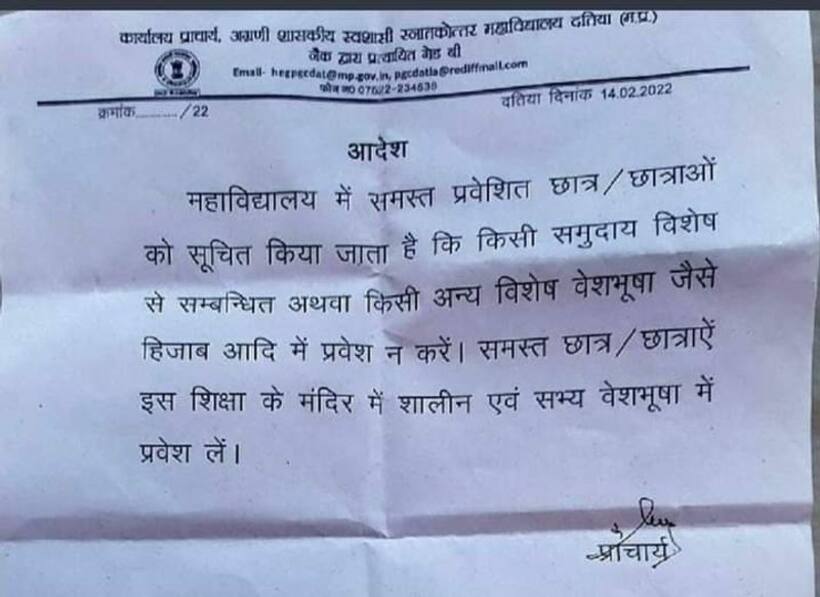 कार्यालय प्राचार्य, अग्रणी शासकीय स्वशासी स्नातकोत्तर महाविद्यालय दतिया (म.प्र.)
नैक द्वारा प्रत्यायित ग्रेड बी
Email- hegpgcdat@mp.gov.in, pgcdatia@rediffmail.com
फोन न0 07522-234538
क्रमांक.........../22
दतिया दिनांक 14.02.2022
आदेश
महाविद्यालय में समस्त प्रवेशित छात्र/छात्राओं
को सूचित किया जाता है कि किसी समुदाय विशेष
से सम्बन्धित अथवा किसी अन्य विशेष वेशभूषा जैसे
हिजाब आदि में प्रवेश न करें। समस्त छात्र/छात्राऐं
इस शिक्षा के मंदिर में शालीन एवं सभ्य वेशभूषा में
प्रवेश लें।
प्राचार्य